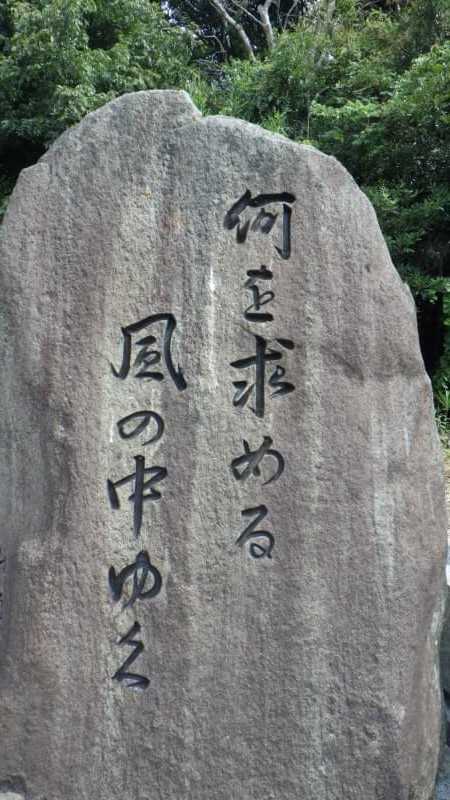 何を求める
風の中ゆく